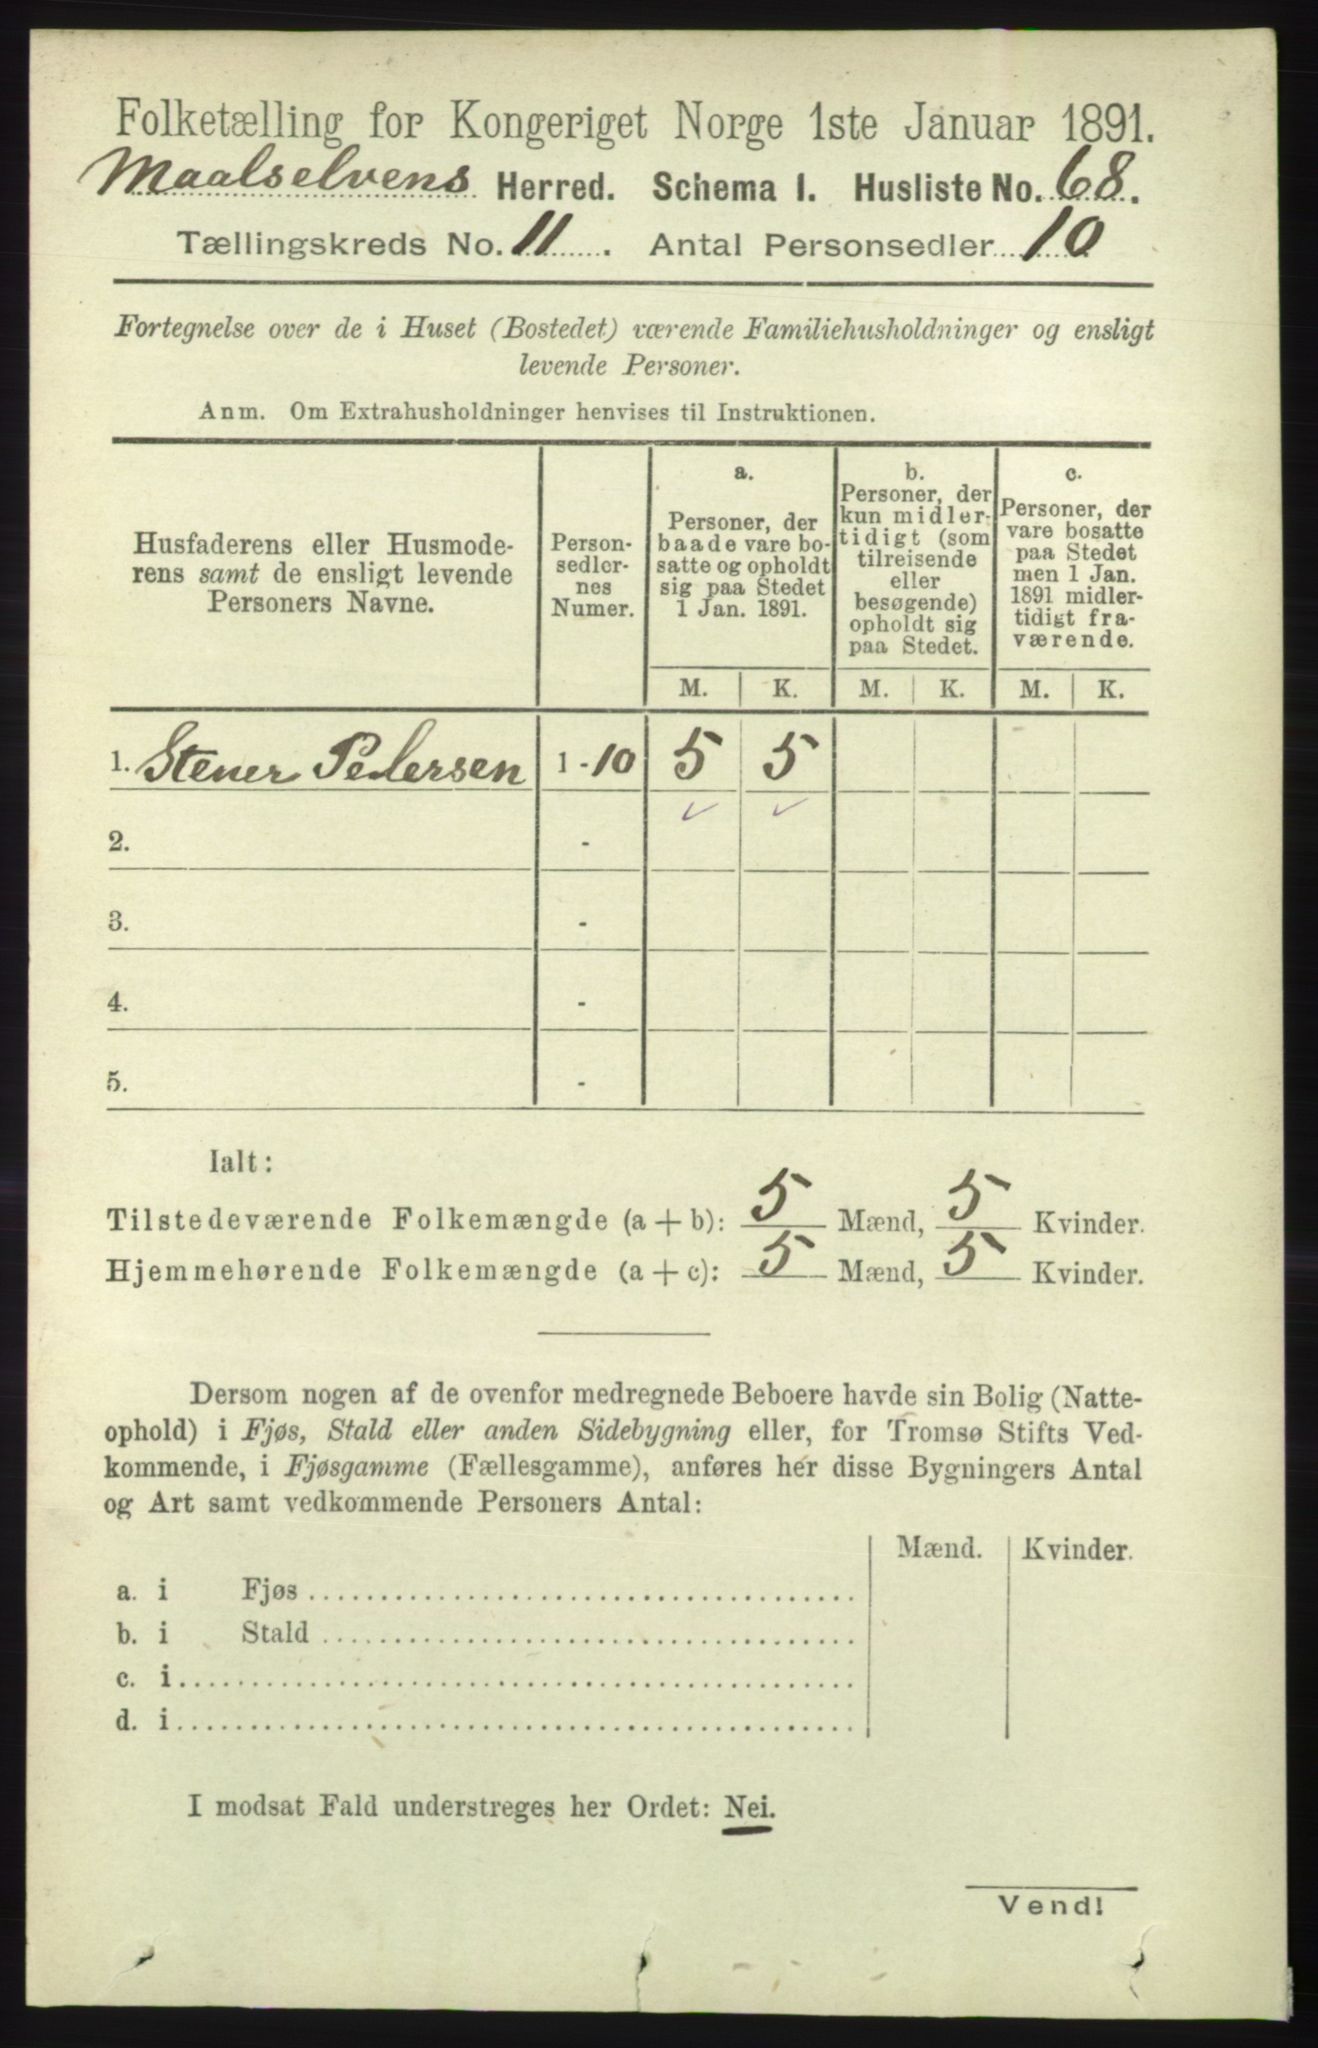 Folketælling for Kongeriget Norge 1ste Januar 1891.
Maalselvens Herred. Schema I. Husliste No. 68.
Tællingskreds No. 11. Antal Personsedler 10
Fortegnelse over de i Huset (Bostedet) værende Familiehusholdninger og ensligt
levende Personer.
Anm. Om Extrahusholdninger henvises til Instruktionen.
Husfaderens eller Husmode-
rens samt de ensligt levende
Personers Navne.
Person-
sedler-
nes
Numer.
a.
Personer, der
baade vare bo-
satte og opholdt
sig paa Stedet
1 Jan. 1891.
b.
Personer, der
kun midler-
tidigt (som
tilreisende
eller
besøgende)
opholdt sig
paa Stedet.
c.
Personer, der
vare bosatte
paa Stedet
men 1 Jan.
1891 midler-
tidigt fra-
værende.
M. K. M. K. M. K.
1. Stener Pedersen 1-10 5 5
2. -
3. -
4. -
5. -
Ialt:
Tilstedeværende Folkemængde (a + b): 5 Mænd, 5 Kvinder.
Hjemmehørende Folkemængde (a + c): 5 Mænd, 5 Kvinder.
Dersom nogen af de ovenfor medregnede Beboere havde sin Bolig (Natte-
ophold) i Fjøs, Stald eller anden Sidebygning eller, for Tromsø Stifts Ved-
kommende, i Fjøsgamme (Fællesgamme), anføres her disse Bygningers Antal
og Art samt vedkommende Personers Antal:
Mænd. Kvinder.
a. i Fjøs
b. i Stald
c. i
d. i
I modsat Fald understreges her Ordet: Nei.
Vend!